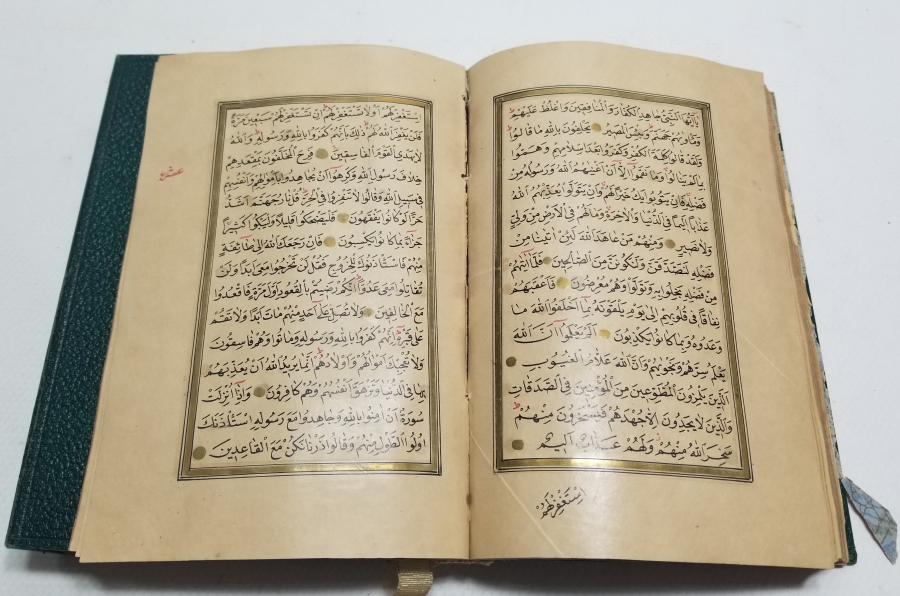 يَا أَيُّهَا النَّبِيُّ جَاهِدِ الْكُفَّارَ وَالْمُنَافِقِينَ وَاغْلُظْ عَلَيْهِمْ
وَمَأْوٰيهُمْ جَهَنَّمُ وَبِئْسَ الْمَصِيرُ يَحْلِفُونَ بِاللّٰهِ مَا قَالُوا
وَلَقَدْ قَالُوا كَلِمَةَ الْكُفْرِ وَكَفَرُوا بَعْدَ اِسْلَامِهِمْ وَهَمُّوا
بِمَا لَمْ يَنَالُوا وَمَا نَقَمُوا اِلَّا اَنْ اَغْنٰيهُمُ اللّٰهُ وَرَسُولُهُ مِنْ
فَضْلِهِ فَاِنْ يَتُوبُوا يَكُ خَيْرًا لَهُمْ وَاِنْ يَتَوَلَّوْا يُعَذِّبْهُمُ اللّٰهُ
عَذَابًا اَلِيمًا فِي الدُّنْيَا وَالْاٰخِرَةِ وَمَا لَهُمْ فِي الْاَرْضِ مِنْ وَلِيٍّ
وَلَا نَصِيرٍ وَمِنْهُمْ مَنْ عَاهَدَ اللّٰهَ لَئِنْ اٰتٰينَا مِنْ
فَضْلِهِ لَنَصَّدَّقَنَّ وَلَنَكُونَنَّ مِنَ الصَّالِحِينَ فَلَمَّا اٰتٰيهُمْ
مِنْ فَضْلِهِ بَخِلُوا بِهِ وَتَوَلَّوْا وَهُمْ مُعْرِضُونَ فَاَعْقَبَهُمْ
نِفَاقًا فِي قُلُوبِهِمْ اِلٰى يَوْمِ يَلْقَوْنَهُ بِمَا اَخْلَفُوا اللّٰهَ مَا
وَعَدُوهُ وَبِمَا كَانُوا يَكْذِبُونَ اَلَمْ يَعْلَمُوا اَنَّ اللّٰهَ
يَعْلَمُ سِرَّهُمْ وَنَجْوٰيهُمْ وَاَنَّ اللّٰهَ عَلَّامُ الْغُيُوبِ
اَلَّذِينَ يَلْمِزُونَ الْمُطَّوِّعِينَ مِنَ الْمُؤْمِنِينَ فِي الصَّدَقَاتِ
وَالَّذِينَ لَا يَجِدُونَ اِلَّا جُهْدَهُمْ فَيَسْخَرُونَ مِنْهُمْ
سَخِرَ اللّٰهُ مِنْهُمْ وَلَهُمْ عَذَابٌ اَلِيمٌ
اِسْتَغْفِرْ لَهُمْ
اِسْتَغْفِرْ لَهُمْ اَوْ لَا تَسْتَغْفِرْ لَهُمْ اِنْ تَسْتَغْفِرْ لَهُمْ سَبْعِينَ مَرَّةً
فَلَنْ يَغْفِرَ اللّٰهُ لَهُمْ ذٰلِكَ بِاَنَّهُمْ كَفَرُوا بِاللّٰهِ وَرَسُولِهِ وَاللّٰهُ
لَا يَهْدِي الْقَوْمَ الْفَاسِقِينَ فَرِحَ الْمُخَلَّفُونَ بِمَقْعَدِهِمْ
خِلَافَ رَسُولِ اللّٰهِ وَكَرِهُوا اَنْ يُجَاهِدُوا بِاَمْوَالِهِمْ وَاَنْفُسِهِمْ
عشر
فِي سَبِيلِ اللّٰهِ وَقَالُوا لَا تَنْفِرُوا فِي الْحَرِّ قُلْ نَارُ جَهَنَّمَ اَشَدُّ
حَرًّا لَوْ كَانُوا يَفْقَهُونَ فَلْيَضْحَكُوا قَلِيلًا وَلْيَبْكُوا كَثِيرًا
جَزَاءً بِمَا كَانُوا يَكْسِبُونَ فَاِنْ رَجَعَكَ اللّٰهُ اِلٰى طَائِفَةٍ
مِنْهُمْ فَاسْتَأْذَنُوكَ لِلْخُرُوجِ فَقُلْ لَنْ تَخْرُجُوا مَعِيَ اَبَدًا وَلَنْ
تُقَاتِلُوا مَعِيَ عَدُوًّا اِنَّكُمْ رَضِيتُمْ بِالْقُعُودِ اَوَّلَ مَرَّةٍ فَاقْعُدُوا
مَعَ الْخَالِفِينَ وَلَا تُصَلِّ عَلٰى اَحَدٍ مِنْهُمْ مَاتَ اَبَدًا وَلَا تَقُمْ
عَلٰى قَبْرِهِ اِنَّهُمْ كَفَرُوا بِاللّٰهِ وَرَسُولِهِ وَمَاتُوا وَهُمْ فَاسِقُونَ
وَلَا تُعْجِبْكَ اَمْوَالُهُمْ وَاَوْلَادُهُمْ اِنَّمَا يُرِيدُ اللّٰهُ اَنْ يُعَذِّبَهُمْ
بِهَا فِي الدُّنْيَا وَتَزْهَقَ اَنْفُسُهُمْ وَهُمْ كَافِرُونَ وَاِذَا اُنْزِلَتْ
سُورَةٌ اَنْ اٰمِنُوا بِاللّٰهِ وَجَاهِدُوا مَعَ رَسُولِهِ اسْتَأْذَنَكَ
اُولُوا الطَّوْلِ مِنْهُمْ وَقَالُوا ذَرْنَا نَكُنْ مَعَ الْقَاعِدِينَ